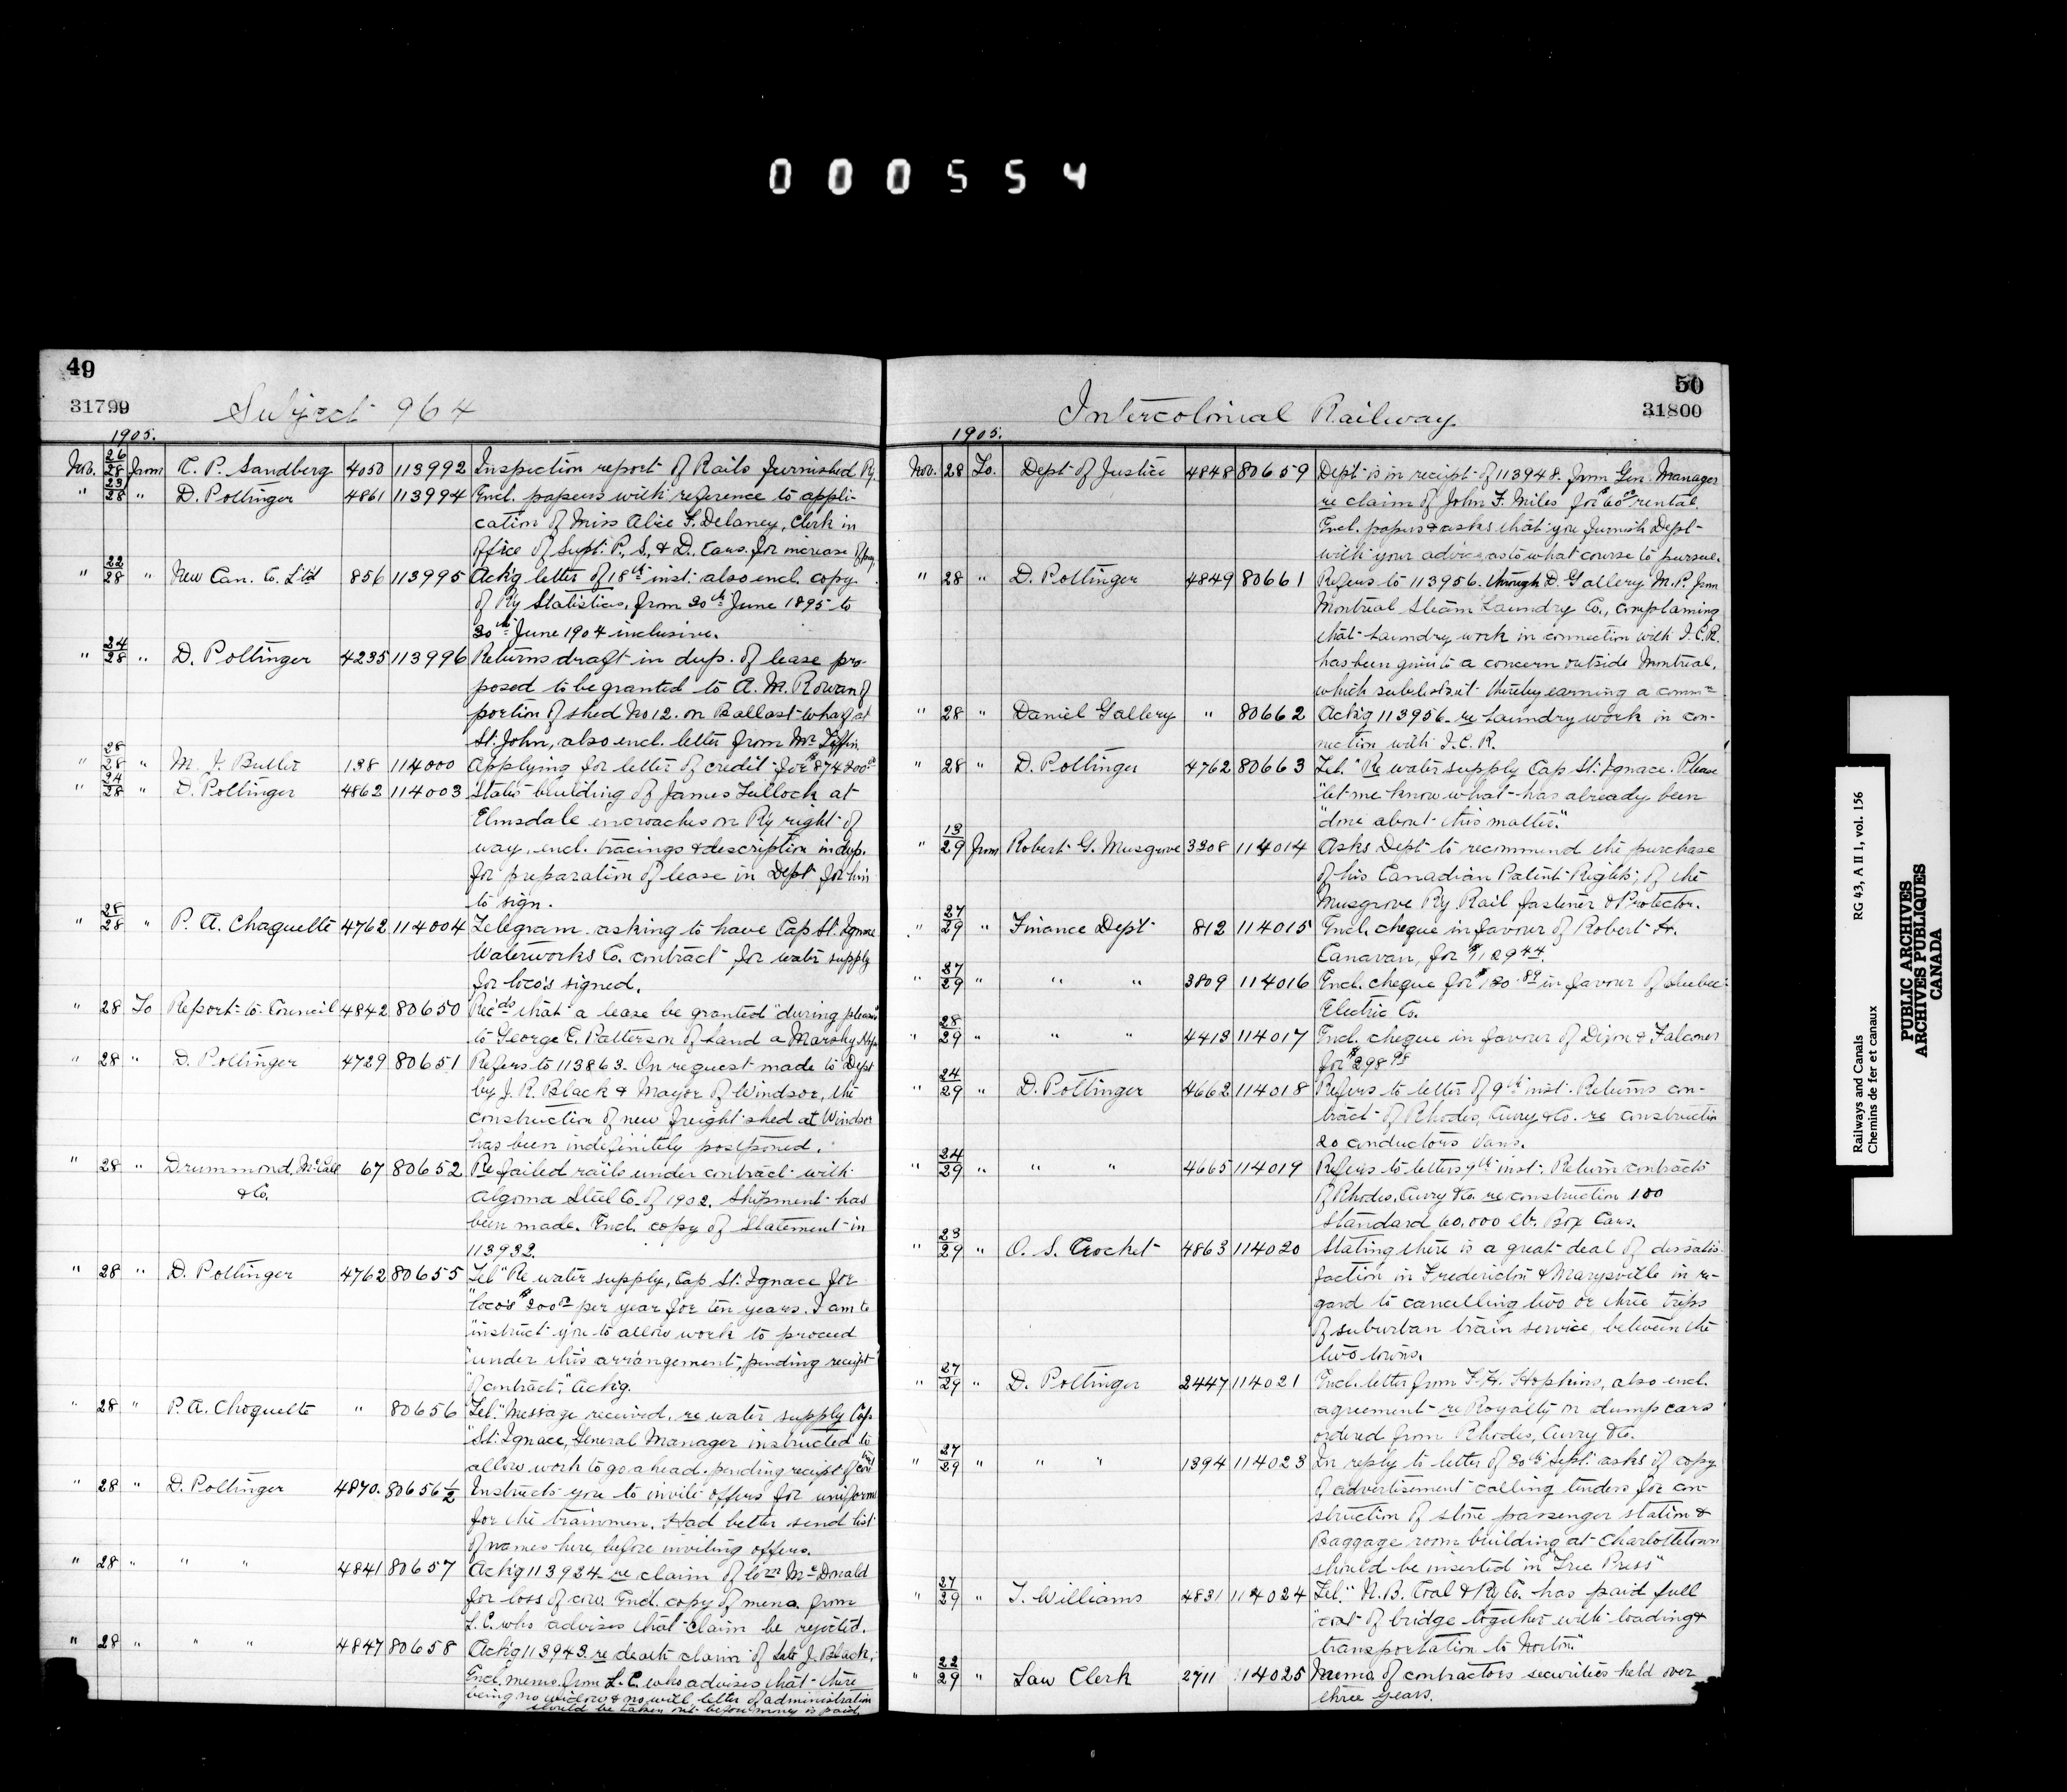 000554
49
31799
Subject 964
1905.
Nov. 26/28 from C. P. Sandberg 4050 113992 Inspection report of Rails furnished Ry.
" 23/28 " D. Pottinger 4861 113994 Encl. papers with reference to appli-
cation of Miss Alice F. Delaney, Clerk in
Office of Supt. P., S., & D. Cars. for increase of pay.
" 22/28 " New Can. Co. Ltd 856 113995 Ack'g letter of 18th inst. also encl. copy
of Ry Statistics, from 30th June 1895 to
30th June 1904 inclusive.
" 24/28 " D. Pottinger 4235 113996 Returns draft in dup. of lease pro-
posed to be granted to A. M. Rowan of
portion of shed No 12. on Ballast Wharf at
St. John, also encl. letter from Mr. Tiffin
" 28/28 " M. J. Butler 138 114000 Applying for letter of credit for $874200.00
" 24/28 " D. Pottinger 4862 114003 States building of James Tullock at
Elmsdale encroaches on Ry right of
way, encl. tracings & description in dup.
for preparation of lease in Dept for him
to sign.
" 28/28 " P. A. Chaquette 4762 114004 Telegram asking to have Cap St. Ignace
Waterworks Co. contract for water supply
for loco's signed.
" 28 To Report to Council 4842 80650 Rec'ds that a lease be granted "during pleasure"
to George E. Patterson of Land a Marshy
" 28 " D. Pottinger 4729 80651 Refers to 113863. On request made to Dept
by J. R. Black & Mayor of Windsor, the
construction of new freight shed at Windsor
has been indefinitely postponed.
" 28 " Drummond, McCall 67 80652 Re failed rails under contract with
& Co. Algoma Steel Co. of 1902. Shipment has
been made. Encl. copy of Statement in
113932.
" 28 " D. Pottinger 4762 80655 Tel "Re water supply, Cap St. Ignace for
"loco's $200.00 per year for ten years. I am to
"instruct you to allow work to proceed
"under this arrangement, pending receipt
"of contract," Ack'g.
" 28 " P. A. Choquette " 80656 Tel. "Message received, re water supply Cap
"St. Ignace, General Manager instructed to
allow work to go ahead, pending receipt of cont
" 28 " D. Pottinger 4870. 80656½ Instructs you to invite offers for uniforms
for the trainmen. Had better send list
of names here, before inviting offers.
" 28 " " " 4841 80657 Ack'g 113924 re claim of McDonald
for loss of cow. Encl. copy of memo. from
L. C. who advises that claim be rejected.
" 28 " " " 4847 80658 Ack'g 113943 re death claim of Late J. Black,
Encl. memo. from L. C. who advises that there
being no widow & no will, letter of administration
should be taken out before money is paid.
50
31800
Intercolonial Railway
1905.
Nov. 28 To. Dept of Justice 4848 80659 Dept is in receipt of 113948. from Gen. Manager
re claim of John F. Miles for $60.00 rental.
Encl. papers & asks that you furnish Dept
with your advice, as to what course to pursue.
" 28 " D. Pottinger 4849 80661 Refers to 113956. through D. Gallery M.P. from
Montreal Steam Laundry Co., complaining
that Laundry work in connection with I.C.R.
has been given to a concern outside Montreal,
which sublets it thereby earning a commn
" 28 " Daniel Gallery " 80662 Ack'g 113956. re Laundry work in con-
nection with I. C. R.
" 28 " D. Pottinger 4762 80663 Tel. "Re water supply Cap St. Ignace. Please
"let me know what has already been
"done about this matter."
" 13/29 from Robert G. Musgrove 3308 114014 Asks Dept to recommend the purchase
of his Canadian Patent Rights, of the
Musgrove Ry Rail fastener & Protector.
" 27/29 " Finance Dept 812 114015 Encl. cheque in favour of Robert H.
Canavan, for $129.44.
" 27/29 " " " 3809 114016 Encl. cheque for in favour of Quebec
Electric Co.
" 28/29 " " " 4413 114017 Encl. cheque in favour of Dixon & Falconer
for $298.98
" 24/29 " D. Pottinger 4662 114018 Refers to letter of 9th inst. Returns con-
tract of Rhodes, Curry & Co. re construction
20 conductors Vans.
" 24/29 " " " 4665 114019 Refers to letters 9th inst. Return contracts
of Rhodes, Curry & Co. re construction 100
standard 60,000 lb. Box Cars.
" 23/29 " O. S. Crocket 4863 114020 Stating there is a great deal of dissatis-
faction in Fredericton & Marysville in re-
gard to cancelling two or three trips
of suburban train service, between the
two towns.
" 27/29 " D. Pottinger 2447 114021 Encl. letter from F. H. Hopkins, also encl.
agreement re Royalty on dump cars
ordered from Rhodes, Curry & Co.
" 27/29 " " " 1394 114023 In reply to letter of 30th Sept. asks if copy
of advertisement calling tenders for con-
struction of stone passenger station &
Baggage room building at Charlottetown
should be inserted in "Free Press"
" 27/29 " T. Williams 4831 114024 Tel. "N. B. Coal & Ry Co. has paid full
"cost of bridge together with loading &
transportation to Norton."
" 22/29 " Law Clerk 2711 114025 Memo of contractors securities held over
three years.
Railways and Canals RG 43, A II 1, vol. 156
Chemins de fer et canaux
PUBLIC ARCHIVES
ARCHIVES PUBLIQUES
CANADA